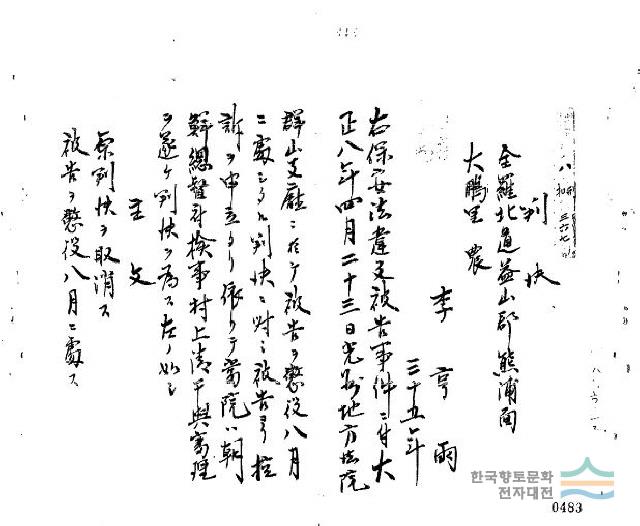 判決
全羅北道益山郡熊浦面
大鵬里 農
李亨雨
三十五年
右保安法違反被告事件ニ付大
正八年四月二十三日光州地方法院
群山支廳ニ於テ被告ヲ懲役八月
ニ處シタル判決ニ對シ被告ヨリ控
訴ヲ申立タリ依リテ當院ハ朝
鮮總督府檢事村上清干與審理
ヲ遂ケ判決ヲ為ス左ノ如シ
主文
原判決ヲ取消ス
被告ヲ懲役八月ニ處ス
한국향토문화
전자대전
0483